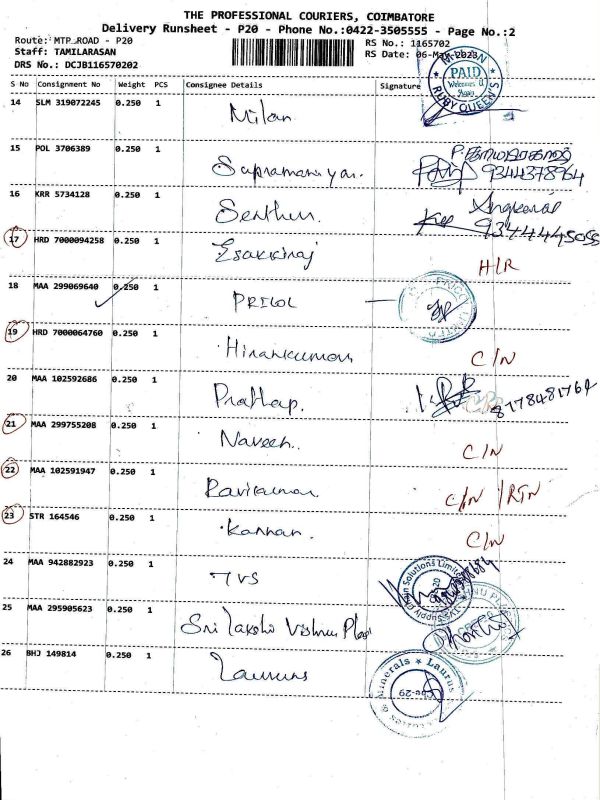 THE PROFESSIONAL COURIERS, COIMBATORE
Delivery Runsheet - P20 - Phone No.:0422-3505555 - Page No.:2
Route: MTP ROAD - P20 RS No.: 1165702
Staff: TAMILARASAN RS Date: 06-May-2023
DRS No.: DCJB116570202
S No Consignment No Weight PCS Consignee Details Signature
PAID
RUBY QUEEN'S
14 SLM 319072245 0.250 1 Milan
15 POL 3706389 0.250 1 Supramaniyan. 9344378964
16 KRR 5734128 0.250 1 Senthun. 9344445055
17 HRD 7000094258 0.250 1 Esakkiraj H/R
18 MAA 299069640 0.250 1 PRICOL
19 HRD 7000064760 0.250 1 Hirankumar C/N
20 MAA 102592686 0.250 1 Prathap. 8778481764
21 MAA 299755208 0.250 1 Naveen. C/N
22 MAA 102591947 0.250 1 Ravikumar. C/N /RTN
23 STR 164546 0.250 1 Kannan. C/N
24 MAA 942882923 0.250 1 TVS
25 MAA 295905623 0.250 1 Sri Lakshi Vishnu Plast
26 BHJ 149814 0.250 1 Laurus
Minerals * Laurus
Cbe-29